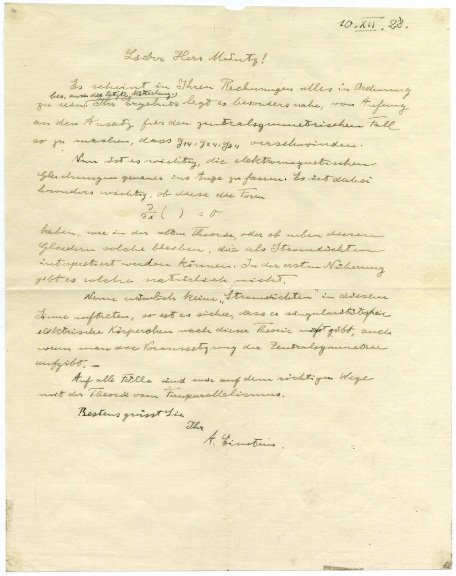 10. XII. 28.
Lieber Herr Müntz!
Es scheint in Ihren Rechnungen alles in Ordnung
bes. auch die letzte Mitteilung.
zu sein. Ihr Ergebnis legt es besonders nahe, von Anfang
an den Ansatz für den zentralsymmetrischen Fall
so zu machen, dass g14, g24, g34 verschwinden.
Nun ist es wichtig, die elektromagnetischen
Gleichungen genauer ins Auge zu fassen. Es ist dabei
besonders wichtig, ob diese die Form
∂/∂x ( ) = 0
haben, wie in der alten Theorie, oder ob neben diesen
Gliedern solche bleiben, die als Stromdichten
interpretiert werden können. In der ersten Näherung
gibt es solche natürlich nicht.
Wenn nämlich keine „Stromdichten" in diesem
Sinne auftreten, so ist es sicher, dass es singularitätsfreie
elektrische Körperchen nach dieser Theorie nicht gibt, auch
wenn man die Voraussetzung der Zentralsymmetrie
aufgibt. —
Auf alle Fälle sind wir auf dem richtigen Wege
mit der Theorie vom Fernparallelismus.
Bestens grüsst Sie
Ihr
A. Einstein.